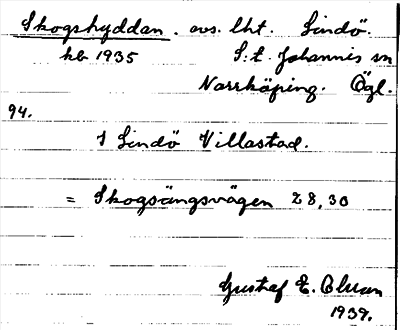 Skogshyddan. avs. lht. Lindö.
kb 1935 S:t Johannis sn
Norrköping. Ögl.
94.
I Lindö Villastad.
= Skogsängsvägen 28, 30
Gustaf E.
1937.